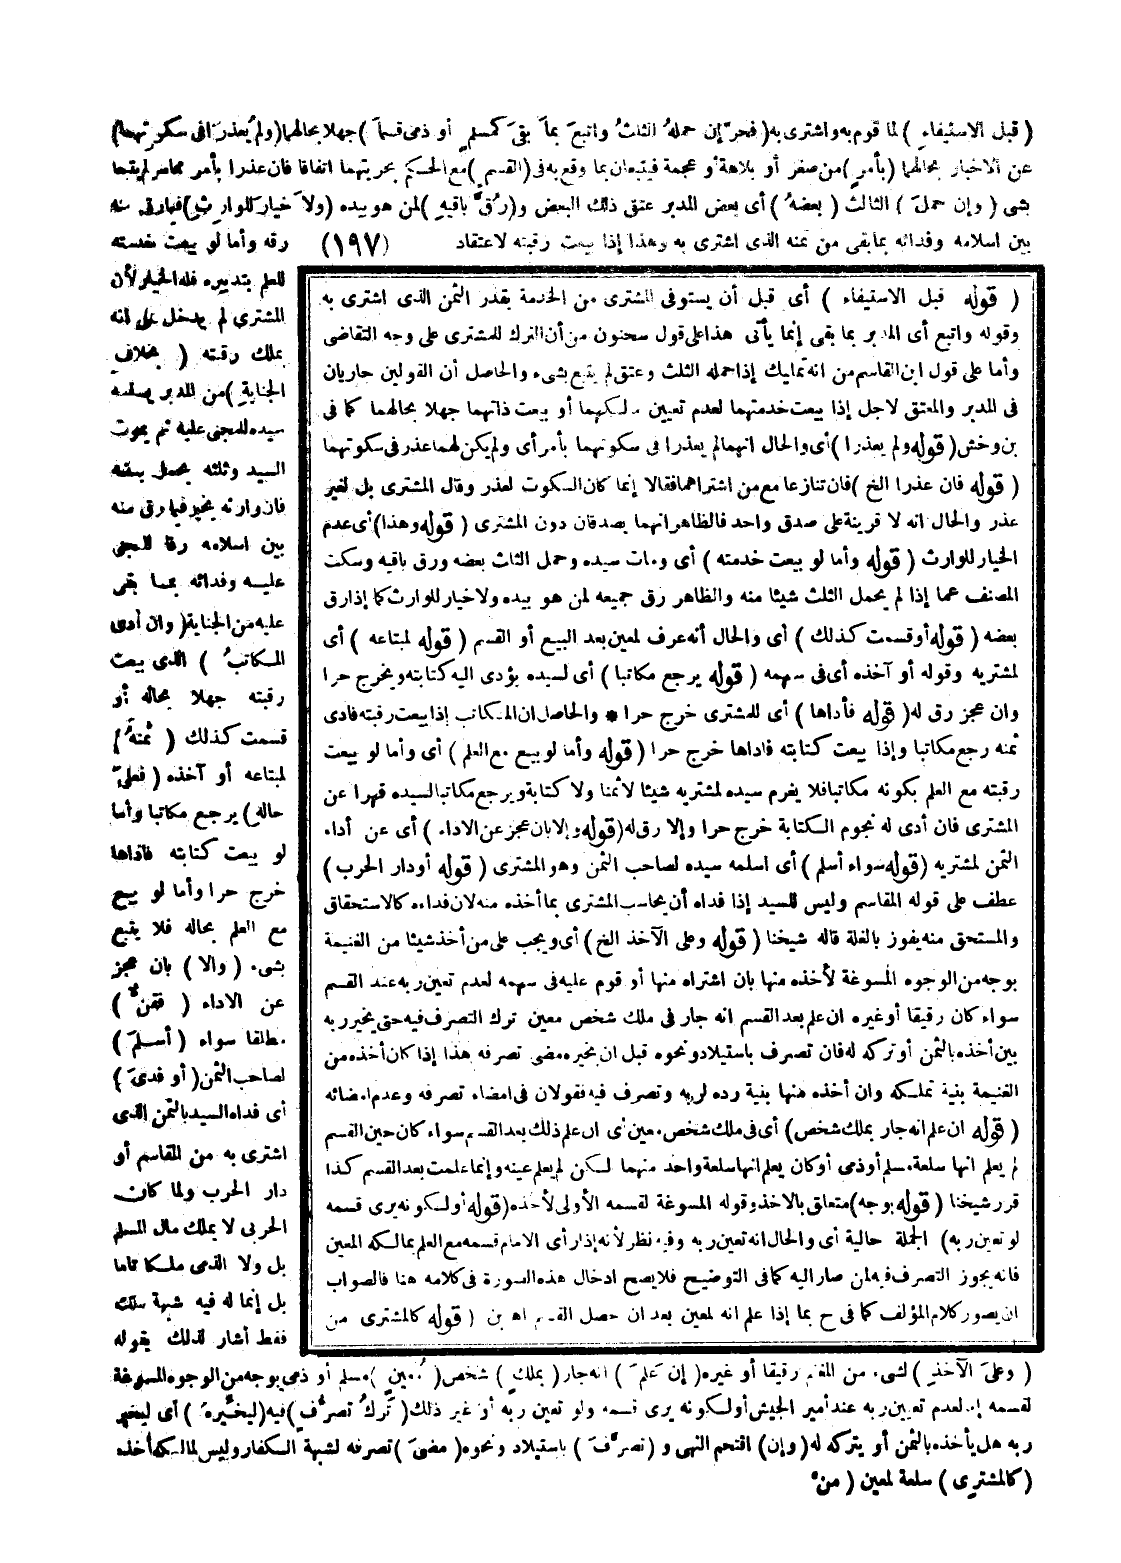 ( قبل الاستيفاء ) لما قوم به واشترى به ( فحر إن حمله الثلث واتبع بما بقى كمسلم أو ذمى قسما ) جهلا بحالهما ( ولم يعذرا فى سكوتهما )
عن الاخبار بحالهما ( بأمر ) من صغر أو بلاهة أو عجمة فيتبعان بما وقع به فى ( القسم ) مع الحكم بحريتهما اتفاقا فان عذرا بأمر مما مر لم يتبعا
بشى ( وإن حمل ) الثالث ( بعضه ) أى بعض المدبر عتق ذلك البعض و ( رق باقيه ) لمن هو بيده ( ولا خيار للوارث ) فيما رق منه
بين اسلامه وفدائه بما بقى من ثمنه الذى اشترى به وهذا إذا بيعت رقبته لاعتقاد (١٩٧) رقه وأما لو بيعت خدمته
للعلم بتدبيره فله الخيار لأن
المشترى لم يدخل على انه
يملك رقبته ( بخلاف
الجناية ) من المدبر يسلمه
سيده للمجنى عليه ثم يموت
السيد وثلثه يحمل بعضه
فان وارثه يخير فيما رق منه
بين اسلامه رقا للمجنى
عليه وفدائه بما بقى
عليه من الجناية ( وان أدى
المكاتب ) الذى بيعت
رقبته جهلا بحاله أو
قسمت كذلك ( ثمنه )
لمبتاعه أو آخذه ( فعلى
حاله ) يرجع مكاتبا وأما
لو بيعت كتابته فاداها
خرج حرا وأما لو بيع
مع العلم بحاله فلا يتبع
بشىء ( والا ) بان عجز
عن الاداء ( فقن )
مطلقا سواء ( أسلم )
لصاحب الثمن ( أو فدى )
أى فداه السيد بالثمن الذى
اشترى به من المقاسم أو
دار الحرب ولما كان
الحربى لا يملك مال المسلم
بل ولا الذمى ملكا تاما
بل إنما له فيه شبهة ملك
فقط أشار لذلك بقوله
( قوله قبل الاستيفاء ) أى قبل أن يستوفى المشترى من الخدمة بقدر الثمن الذى اشترى به
وقوله واتبع أى المدبر بما بقى إنما يأتى هذا على قول سحنون من أن الترك للمشترى على وجه التقاضى
وأما على قول ابن القاسم من انه تمليك إذا حمله الثلث وعتق لم يتبع بشىء والحاصل أن القولين جاريان
فى المدبر والمعتق لاجل إذا بيعت خدمتهما لعدم تعيين مالكهما أو بيعت ذاتهما جهلا بحالهما كما فى
بن وخش ( قوله ولم يعذرا ) أى والحال انهما لم يعذرا فى سكوتهما بأمر أى ولم يكن لهما عذر فى سكوتهما
( قوله فان عذرا الخ ) فان تنازعا مع من اشتراهما فقالا إنما كان السكوت لعذر وقال المشترى بل لغير
عذر والحال انه لا قرينة على صدق واحد فالظاهر انهما يصدقان دون المشترى ( قوله وهذا ) أى عدم
الخيار للوارث ( قوله وأما لو بيعت خدمته ) أى ومات سيده وحمل الثلث بعضه ورق باقيه وسكت
المصنف عما إذا لم يحمل الثلث شيئا منه والظاهر رق جميعه لمن هو بيده ولا خيار للوارث كما إذا رق
بعضه ( قوله أو قسمت كذلك ) أى والحال أنه عرف لمعين بعد البيع أو القسم ( قوله لمبتاعه ) أى
لمشتريه وقوله أو آخذه أى فى سهمه ( قوله يرجع مكاتبا ) أى لسيده يؤدى اليه كتابته ويخرج حرا
وان عجز رق له ( قوله فأداها ) أى للمشترى خرج حرا * والحاصل ان المكاتب إذا بيعت رقبته فادى
ثمنه رجع مكاتبا وإذا بيعت كتابته فاداها خرج حرا ( قوله وأما لو بيع مع العلم ) أى وأما لو بيعت
رقبته مع العلم بكونه مكاتبا فلا يغرم سيده لمشتريه شيئا لا ثمنا ولا كتابة ويرجع مكاتبا لسيده قهرا عن
المشترى فان أدى له نجوم الكتابة خرج حرا وإلا رق له ( قوله وإلا بان عجز عن الاداء ) أى عن أداء
الثمن لمشتريه ( قوله سواء أسلم ) أى اسلمه سيده لصاحب الثمن وهو المشترى ( قوله أو دار الحرب )
عطف على قوله المقاسم وليس للسيد إذا فداه أن يحاسب المشترى بما أخذه منه لان فداءه كالاستحقاق
والمستحق منه يفوز بالغلة قاله شيخنا ( قوله وعلى الآخذ الخ ) أى ويجب على من أخذ شيئا من الغنيمة
بوجه من الوجوه المسوغة لأخذه منها بان اشتراه منها أو قوم عليه فى سهمه لعدم تعين ربه عند القسم
سواء كان رقيقا أو غيره ان علم بعد القسم انه جار فى ملك شخص معين ترك التصرف فيه حتى يخير ربه
بين أخذه بالثمن أو تركه له فان تصرف باستيلاد ونحوه قبل ان يخيره مضى تصرفه هذا إذا كان أخذه من
الغنيمة بنية تملكه وان أخذه منها بنية رده لربه وتصرف فيه فقولان فى امضاء تصرفه وعدم امضائه
( قوله ان علم انه جار بملك شخص ) أى فى ملك شخص معين أى ان علم ذلك بعد القسم سواء كان حين القسم
لم يعلم انها سلعة مسلم أو ذمى أو كان يعلم انها سلعة واحد منهما لكن لم يعلم عينه وإنما علمت بعد القسم كذا
قرر شيخنا ( قوله بوجه ) متعلق بالاخذ وقوله المسوغة لقسمه الأولى لأخذه ( قوله أو لكونه يرى قسمه
لو تعين ربه ) الجملة حالية أى والحال انه تعين ربه وفيه نظر لأنه إذا رأى الامام قسمه مع العلم بمالكه المعين
فانه يجوز التصرف فيه لمن صار اليه كما فى التوضيح فلا يصح ادخال هذه السورة فى كلامه هنا فالصواب
ان يصور كلام المؤلف كما فى ح بما إذا علم انه لمعين بعد ان حصل القسم اه بن ( قوله كالمشترى من
( وعلى الآخذ ) لشىء من المغنم رقيقا أو غيره ( إن علم ) انه جار ( بملك ) شخص ( معين ) مسلم أو ذمى بوجه من الوجوه المسوغة
لقسمه إما لعدم تعيين ربه عند أمير الجيش أو لكونه يرى قسمه ولو تعين ربه أو غير ذلك ( ترك تصرف ) فيه ( ليخيره ) أى ليخير
ربه هل يأخذه بالثمن أو يتركه له ( وإن ) اقتحم النهى و ( تصرف ) باستيلاد ونحوه ( مضى ) تصرفه لشبهة الكفار وليس لمالكه أخذه
( كالمشترى ) سلعة لمعين ( من